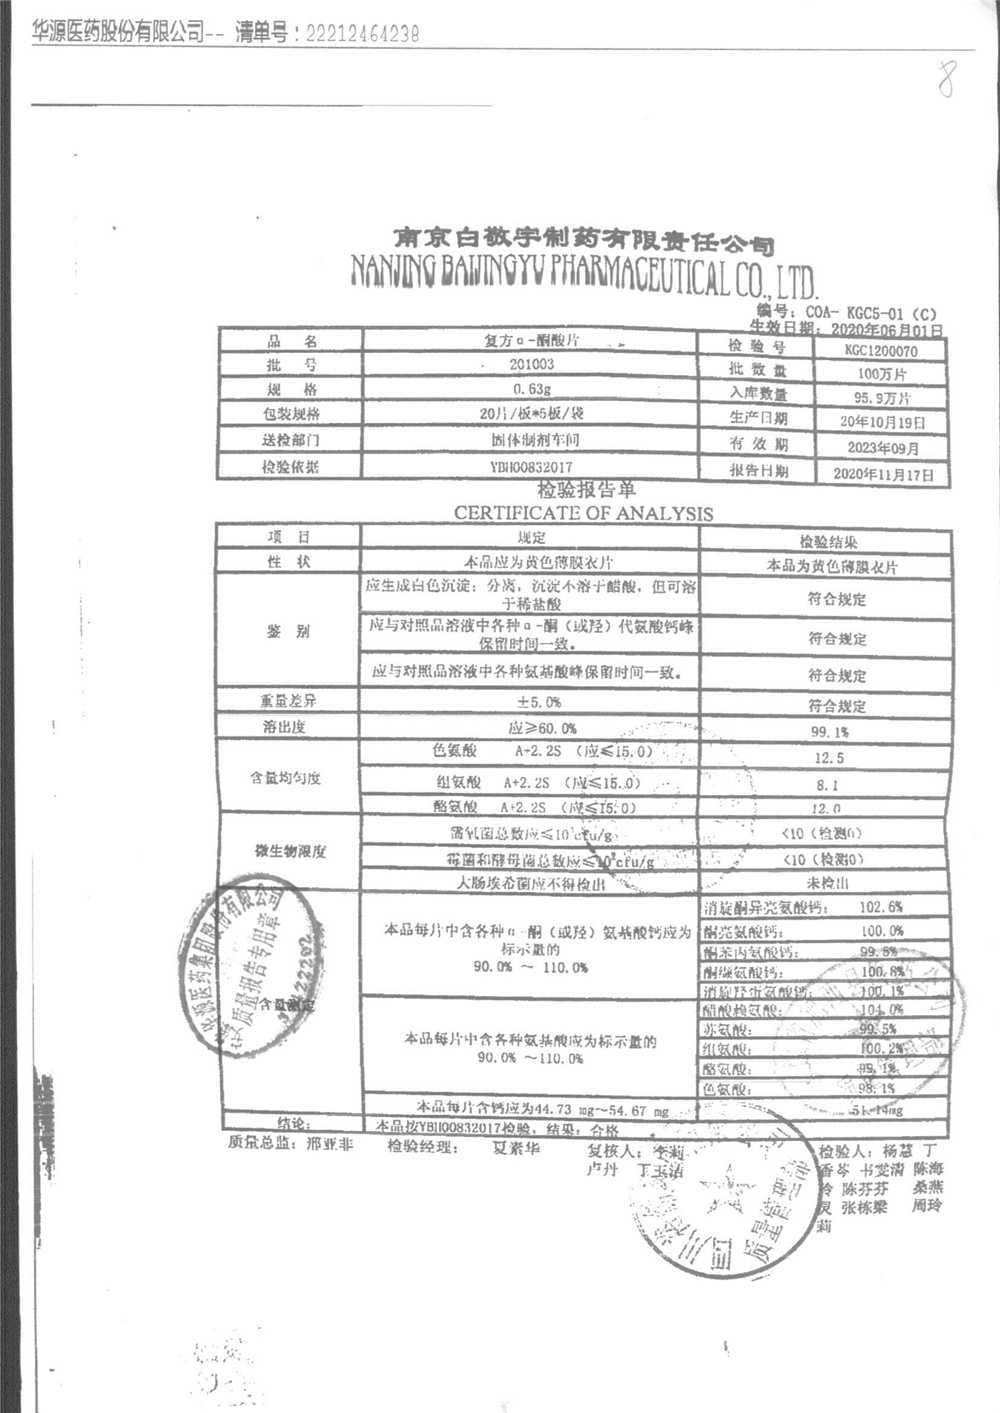 华源医药股份有限公司-- 清单号：22212464238
8
南京白敬宇制药有限责任公司
NANJING BAIJINGYU PHARMACEUTICAL CO., LTD.
编号：COA- KGC5-01 (C)
生效日期：2020年06月01日
品 名 复方α-酮酸片 检 验 号 KGC1200070
批 号 201003 批 数 量 100万片
规 格 0.63g 入库数量 95.9万片
包装规格 20片/板*5板/袋 生产日期 20年10月19日
送检部门 固体制剂车间 有 效 期 2023年09月
检验依据 YBH00832017 报告日期 2020年11月17日
检验报告单
CERTIFICATE OF ANALYSIS
项 目 规定 检验结果
性 状 本品应为黄色薄膜衣片 本品为黄色薄膜衣片
鉴 别 应生成白色沉淀；分离，沉淀不溶于醋酸，但可溶
于稀盐酸 符合规定
应与对照品溶液中各种α-酮（或羟）代氨酸钙峰
保留时间一致。 符合规定
应与对照品溶液中各种氨基酸峰保留时间一致。 符合规定
重量差异 ±5.0% 符合规定
溶出度 应≥60.0% 99.1%
含量均匀度 色氨酸 A+2.2S （应≤15.0） 12.5
组氨酸 A+2.2S （应≤15.0） 8.1
酪氨酸 A+2.2S （应≤15.0） 12.0
微生物限度 需氧菌总数应≤10³cfu/g <10（检测0）
霉菌和酵母菌总数应≤10²cfu/g <10（检测0）
大肠埃希菌应不得检出 未检出
含量测定 本品每片中含各种α-酮（或羟）氨基酸钙应为
标示量的
90.0% ~ 110.0%
消旋酮异亮氨酸钙： 102.6%
酮亮氨酸钙： 100.0%
酮苯丙氨酸钙： 99.8%
酮缬氨酸钙： 100.8%
消旋羟蛋氨酸钙： 100.1%
本品每片中含各种氨基酸应为标示量的
90.0% ~110.0%
醋酸赖氨酸： 104.0%
苏氨酸： 99.5%
组氨酸： 100.2%
酪氨酸： 99.1%
色氨酸： 98.1%
本品每片含钙应为44.73 mg~54.67 mg 51.14mg
结论： 本品按YBH00832017检验，结果：合格
质量总监：邢亚非 检验经理： 夏素华 复核人：李莉 检验人：杨慧 丁
卢丹 香芩 书雯清 陈海
玲 陈芬芬 桑燕
灵 张栋梁 周玲
莉
华源医药集团股份有限公司
质量报告专用章